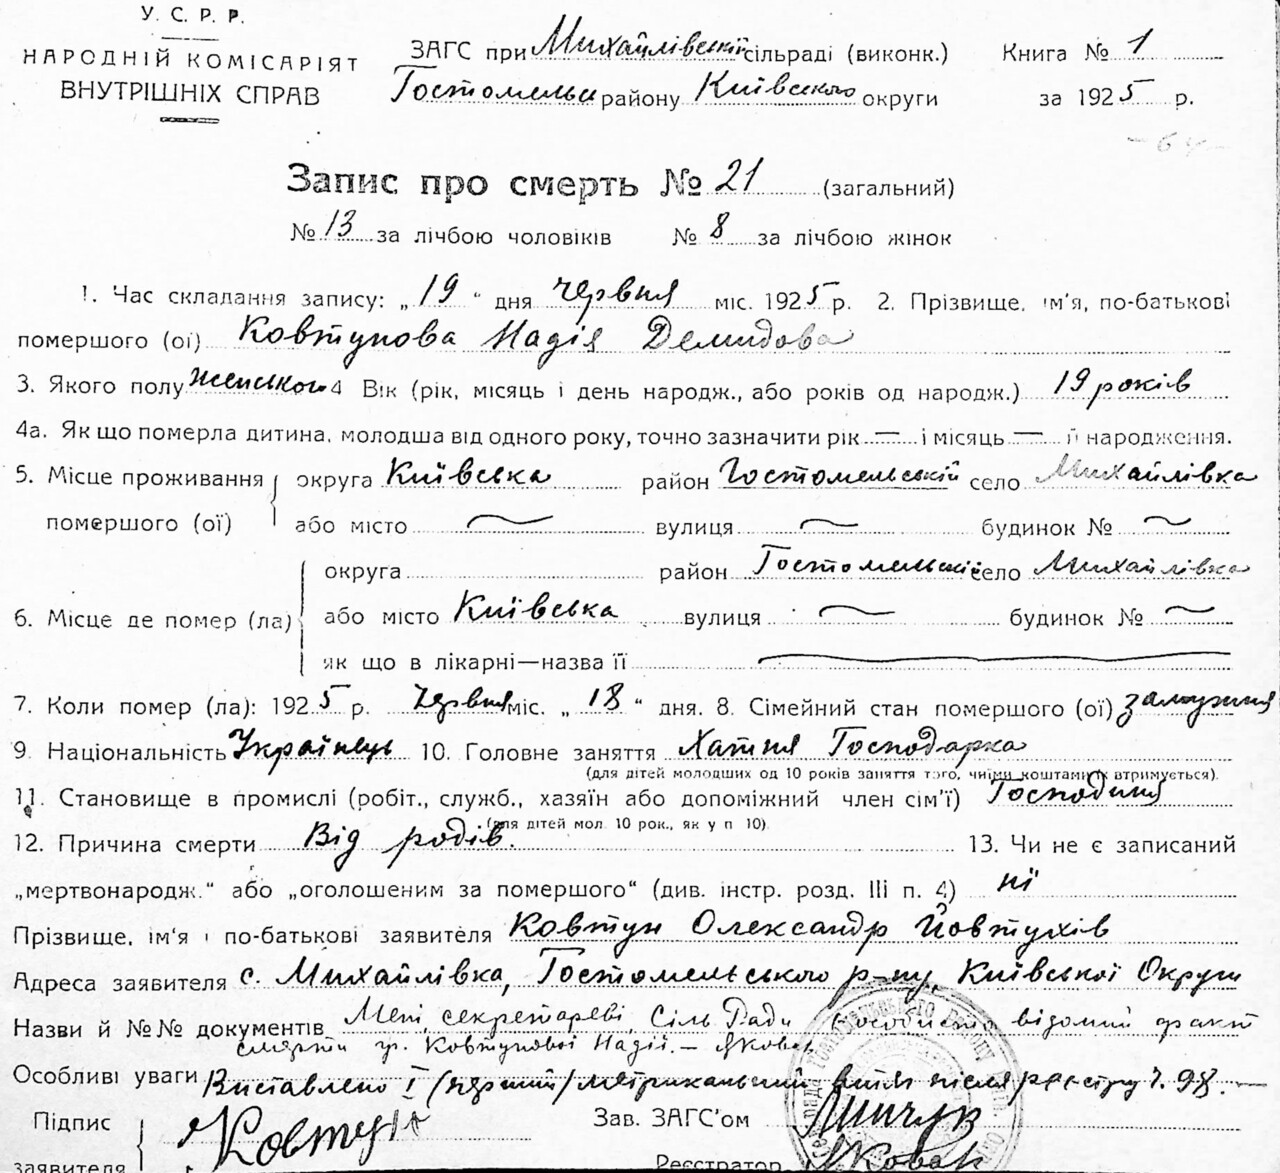 У. С. Р. Р.
НАРОДНІЙ КОМІСАРІЯТ
ВНУТРІШНІХ СПРАВ
ЗАГС при Михайлівській сільраді (виконк.) Книга № 1
Гостомельськ району Київського округи за 1925 р.
Запис про смерть № 21 (загальний)
№ 13 за лічбою чоловіків № 8 за лічбою жінок
1. Час складання запису: „19“ дня червня міс. 1925 р. 2. Прізвище, ім'я, по-батькові
помершого (ої) Ковтунова Надія Демидова
3. Якого полу Женського 4 Вік (рік, місяць і день народж., або років од народж.) 19 років
4а. Як що померла дитина, молодша від одного року, точно зазначити рік — і місяць — її народження.
5. Місце проживання округа Київська район Гостомельській село Михайлівка
помершого (ої) або місто вулиця будинок №
округа район Гостомельскій село Михайлівка
6. Місце де помер (ла) або місто Київська вулиця будинок №
як що в лікарні—назва її
7. Коли помер (ла): 1925 р. Червня міс. „18“ дня. 8. Сімейний стан помершого (ої) замужния
9. Національність Українець 10. Головне заняття Хатня Господарка
(для дітей молодших од 10 років заняття того, чиїми коштами їх втримується).
11. Становище в промислі (робіт., служб., хазяїн або допоміжний член сім'ї) Господиня
(для дітей мол. 10 рок., як у п 10)
12. Причина смерти Від родів. 13. Чи не є записаний
„мертвонародж.“ або „оголошеним за помершого“ (див. інстр. розд. III п. 4) ні
Прізвище, ім'я і по-батькові заявителя Ковтун Олександр Йовтухів
Адреса заявителя с. Михайлівка, Гостомельського р-ну, Київської Округи
Назви й №№ документів Мені, секретареві, Сіль Ради особисто відомий факт
смерти гр. Ковтунової Надії. — Яковак
Особливі уваги Виставлено I /перший/ метрикальний витяг після реєстру ч. 98. —
Підпис Зав. ЗАГС'ом Минчук
заявителя Ковтун Реєстратор Яковак